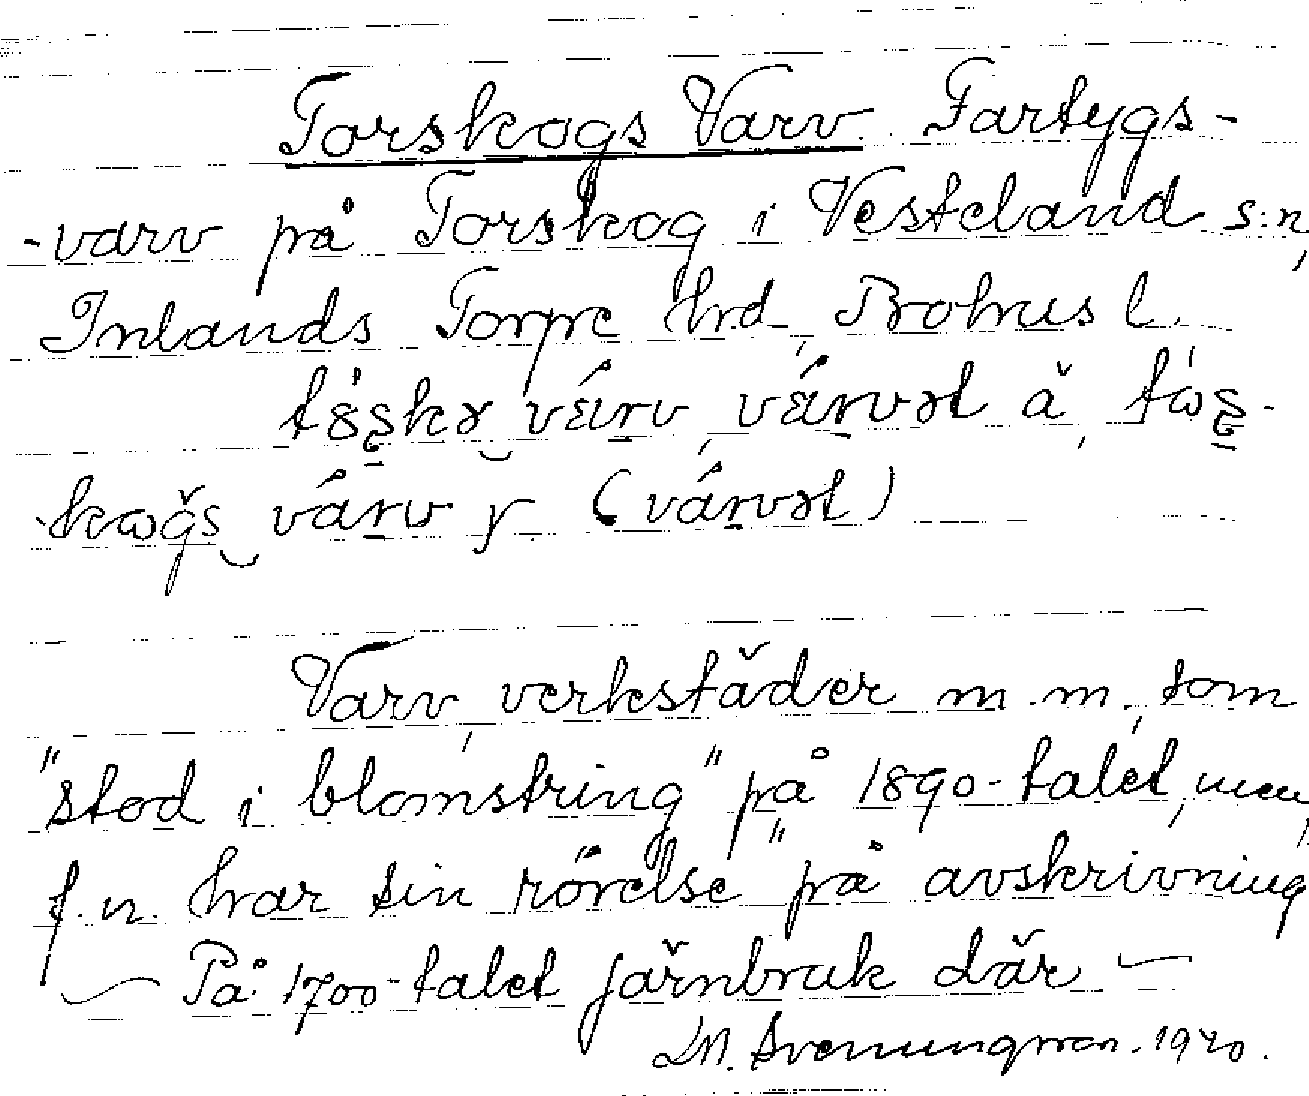 Torskogs Varv Fartygs-
-varv på Torskog i Västerland s:n,
Inlands Torpe hrd, Bohus l.
(várvət)
Varv, verkstäder m.m, som
"stod i blomstring" på 1890-talet, men,
f.n. har sin rörelse "på avskrivning
— På 1700-talet järnbruk där —
M. Svenungsson. 1920.